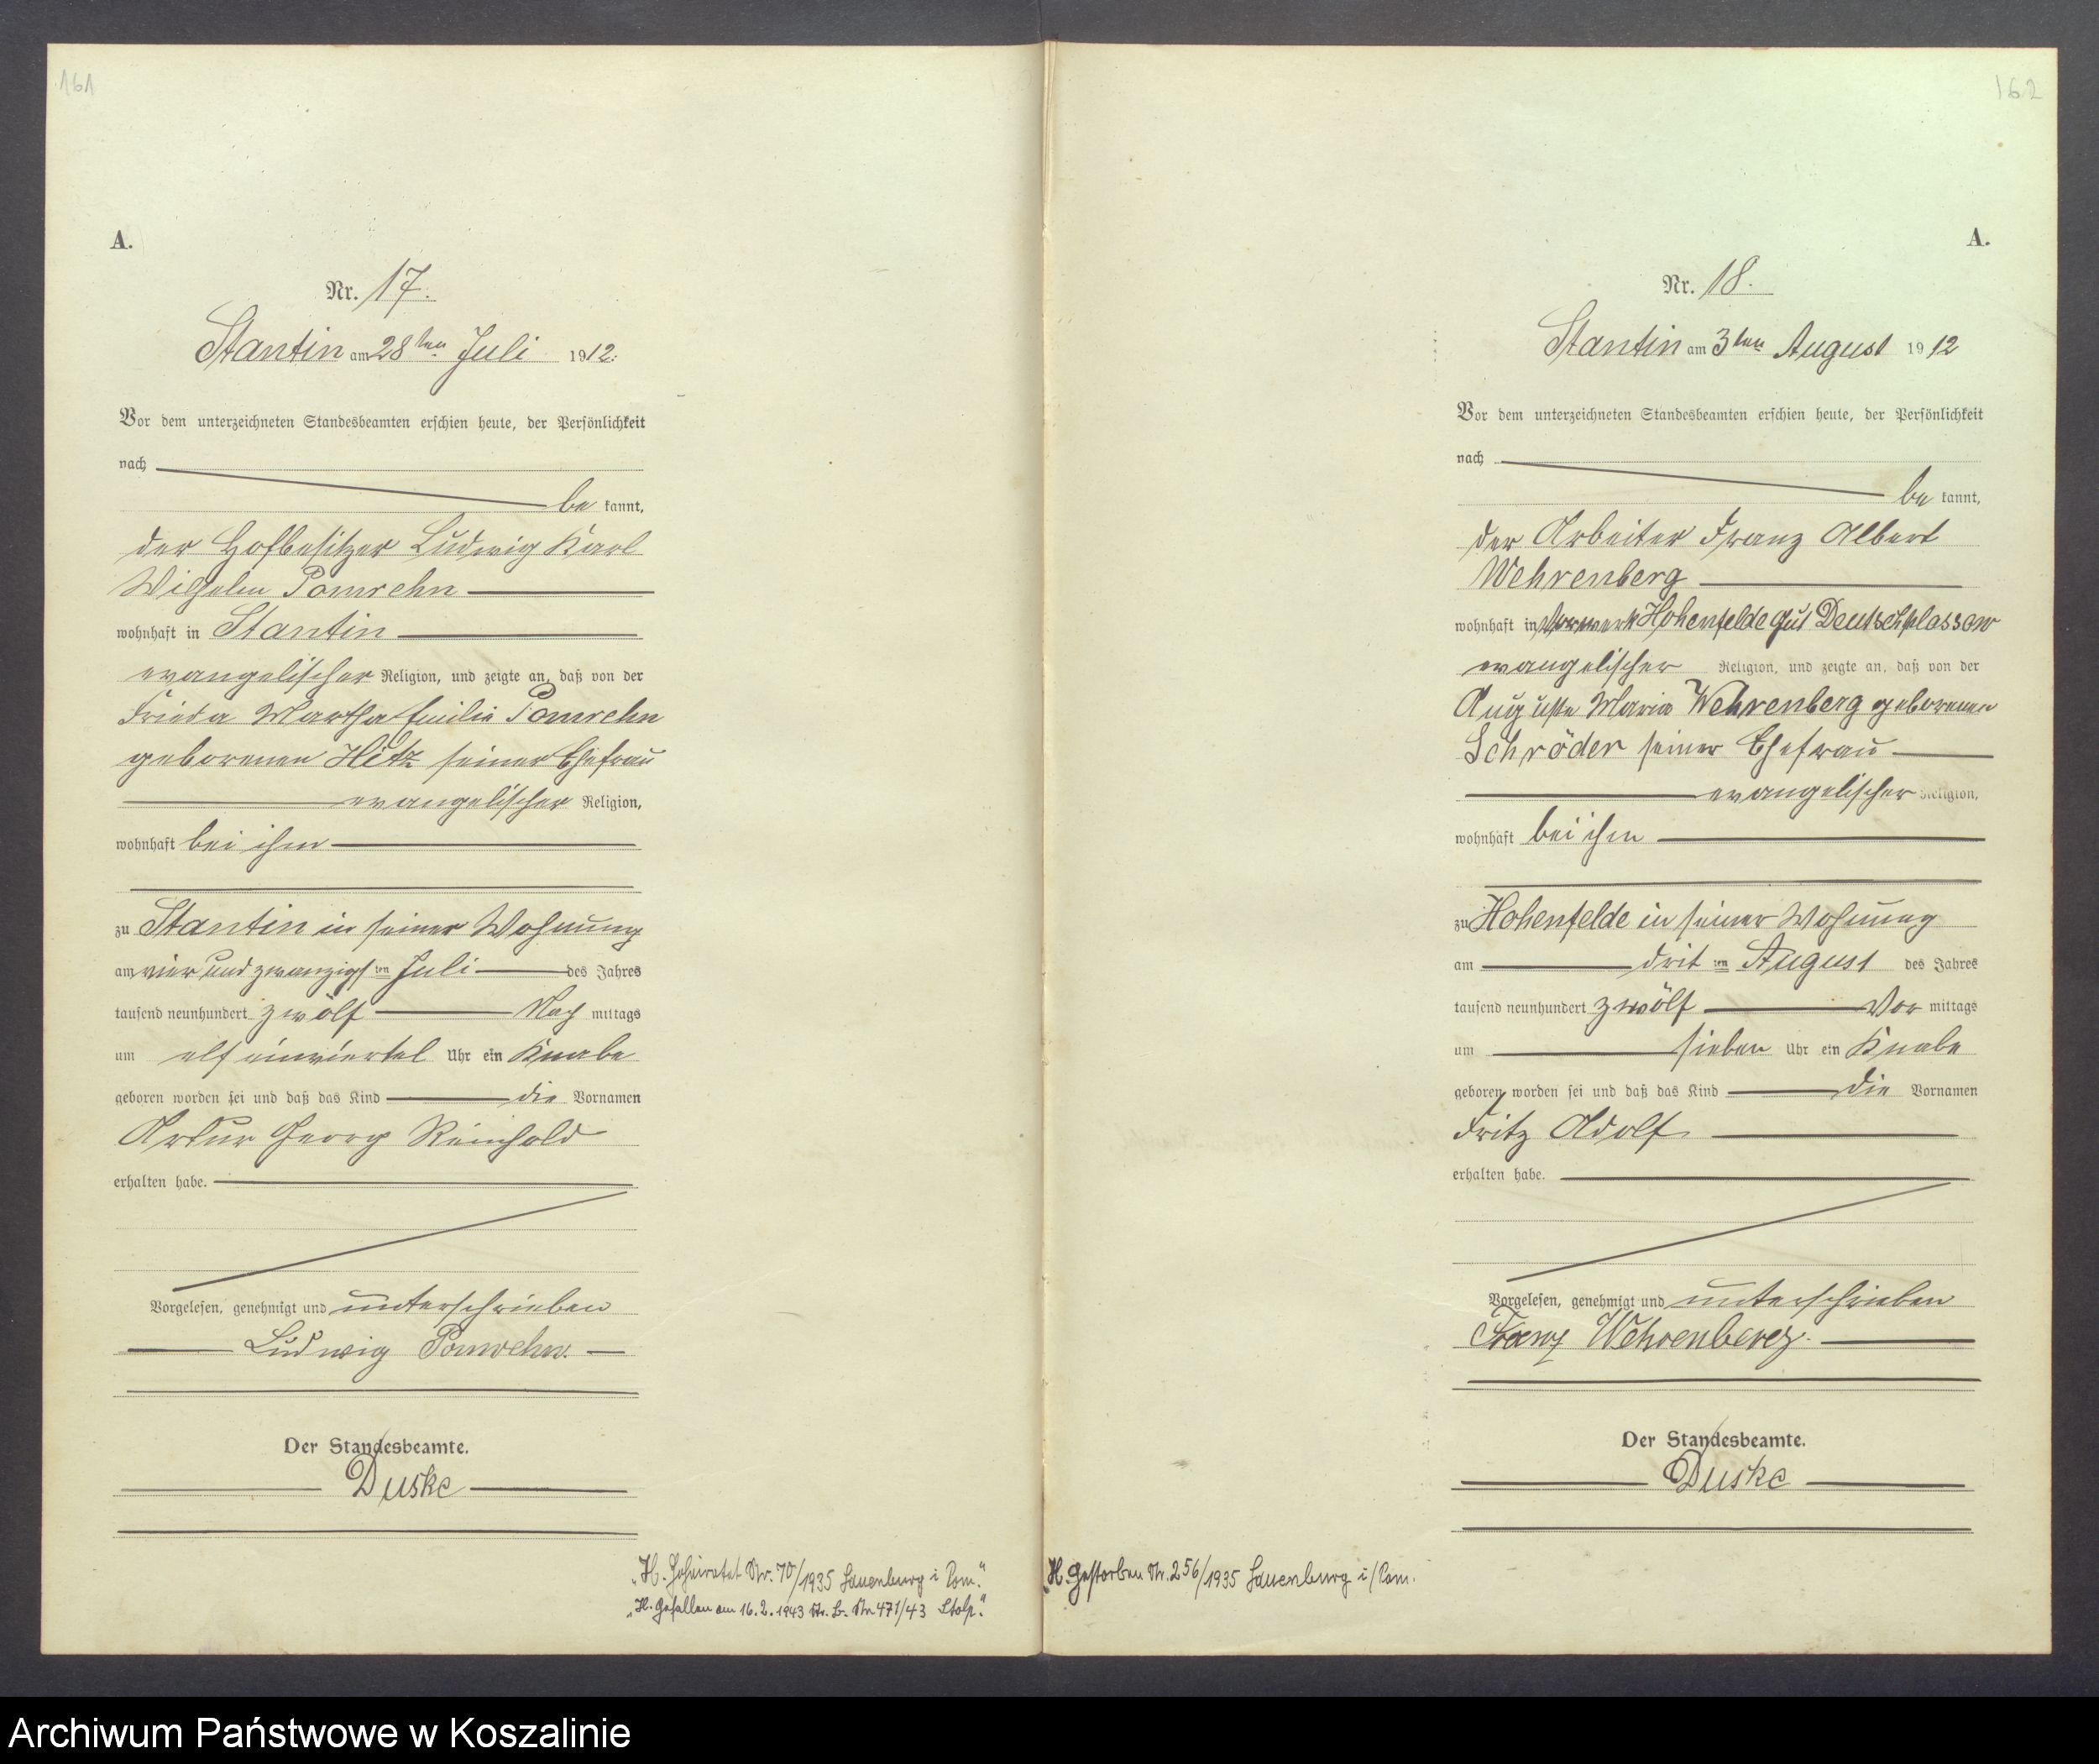 161
A.
Nr. 17.
Stantin am 28ten Juli 1912.
Vor dem unterzeichneten Standesbeamten erschien heute, der Persönlichkeit
nach
be kannt,
der Hofbesitzer Ludwig Karl
Wilhelm Pomrehn
wohnhaft in Stantin
evangelischer Religion, und zeigte an, daß von der
Frieda Martha Emilie Pomrehn
geborenen Hetz seiner Ehefrau
evangelischer Religion,
wohnhaft bei ihm
zu Stantin in seiner Wohnung
am vier und zwanzigsten Juli des Jahres
tausend neunhundert zwölf Nach mittags
um elf einviertel Uhr ein Knabe
geboren worden sei und daß das Kind die Vornamen
Artur Georg Reinhold
erhalten habe.
Vorgelesen, genehmigt und unterschrieben
Ludwig Pomrehn.
Der Standesbeamte.
Duske
„H. Geheiratet Nr. 70/1935 Lauenburg i Pom.“
„H. Gefallen am 16.2.1943 St. B. Nr 471/43 Stolp.“
162
A.
Nr. 18.
Stantin am 3ten August 1912
Vor dem unterzeichneten Standesbeamten erschien heute, der Persönlichkeit
nach
be kannt,
der Arbeiter Franz Albert
Wehrenberg
wohnhaft in Vorwerk Hohenfelde Gut Deutschplassow
evangelischer Religion, und zeigte an, daß von der
Auguste Maria Wehrenberg geborenen
Schröder seiner Ehefrau
evangelischer Religion,
wohnhaft bei ihm
zu Hohenfelde in seiner Wohnung
am dritten August des Jahres
tausend neunhundert zwölf Vor mittags
um sieben Uhr ein Knabe
geboren worden sei und daß das Kind die Vornamen
Fritz Adolf
erhalten habe.
Vorgelesen, genehmigt und unterschrieben
Franz Wehrenberg.
Der Standesbeamte.
Duske
„H. Gestorben Nr. 256/1935 Lauenburg i/Pom.
Archiwum Państwowe w Koszalinie